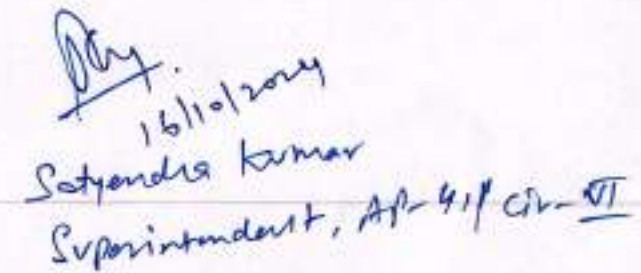 16/10/2024
Satyendra Kumar
Superintendent, AP-41/ Cir-VI